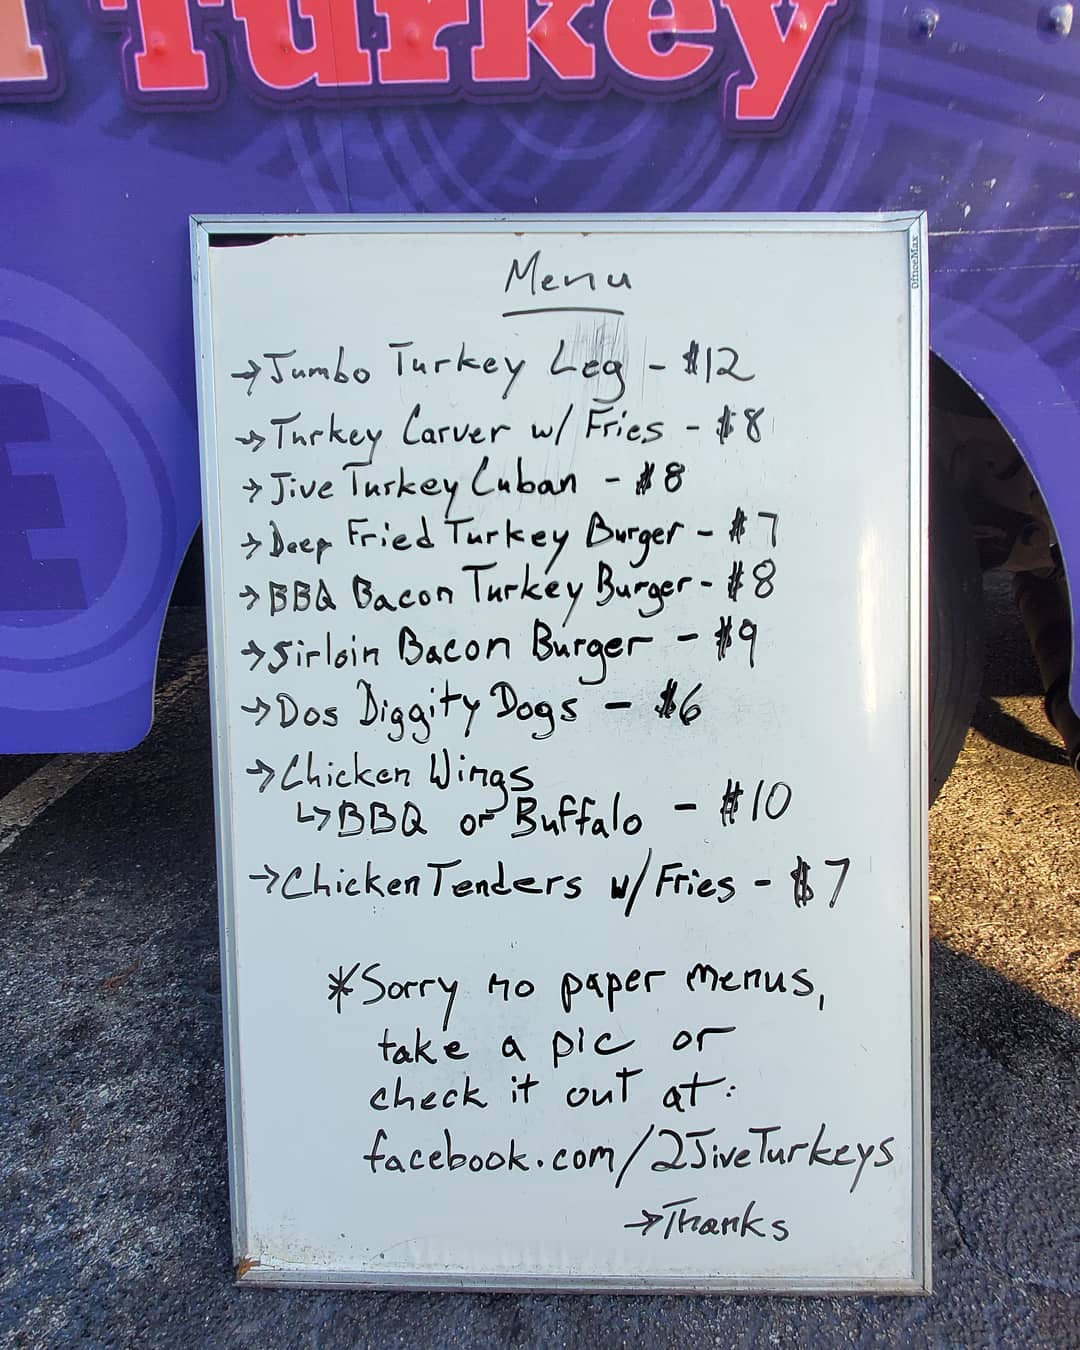 Turkey
OfficeMax
Menu
→Jumbo Turkey Leg - $12
→Turkey Carver w/ Fries - $8
→Jive Turkey Cuban - $8
→Deep Fried Turkey Burger - $7
→BBQ Bacon Turkey Burger - $8
→Sirloin Bacon Burger - $9
→Dos Diggity Dogs - $6
→Chicken Wings
↳BBQ or Buffalo - $10
→Chicken Tenders w/ Fries - $7
*Sorry no paper menus,
take a pic or
check it out at:
facebook.com/2JiveTurkeys
→Thanks